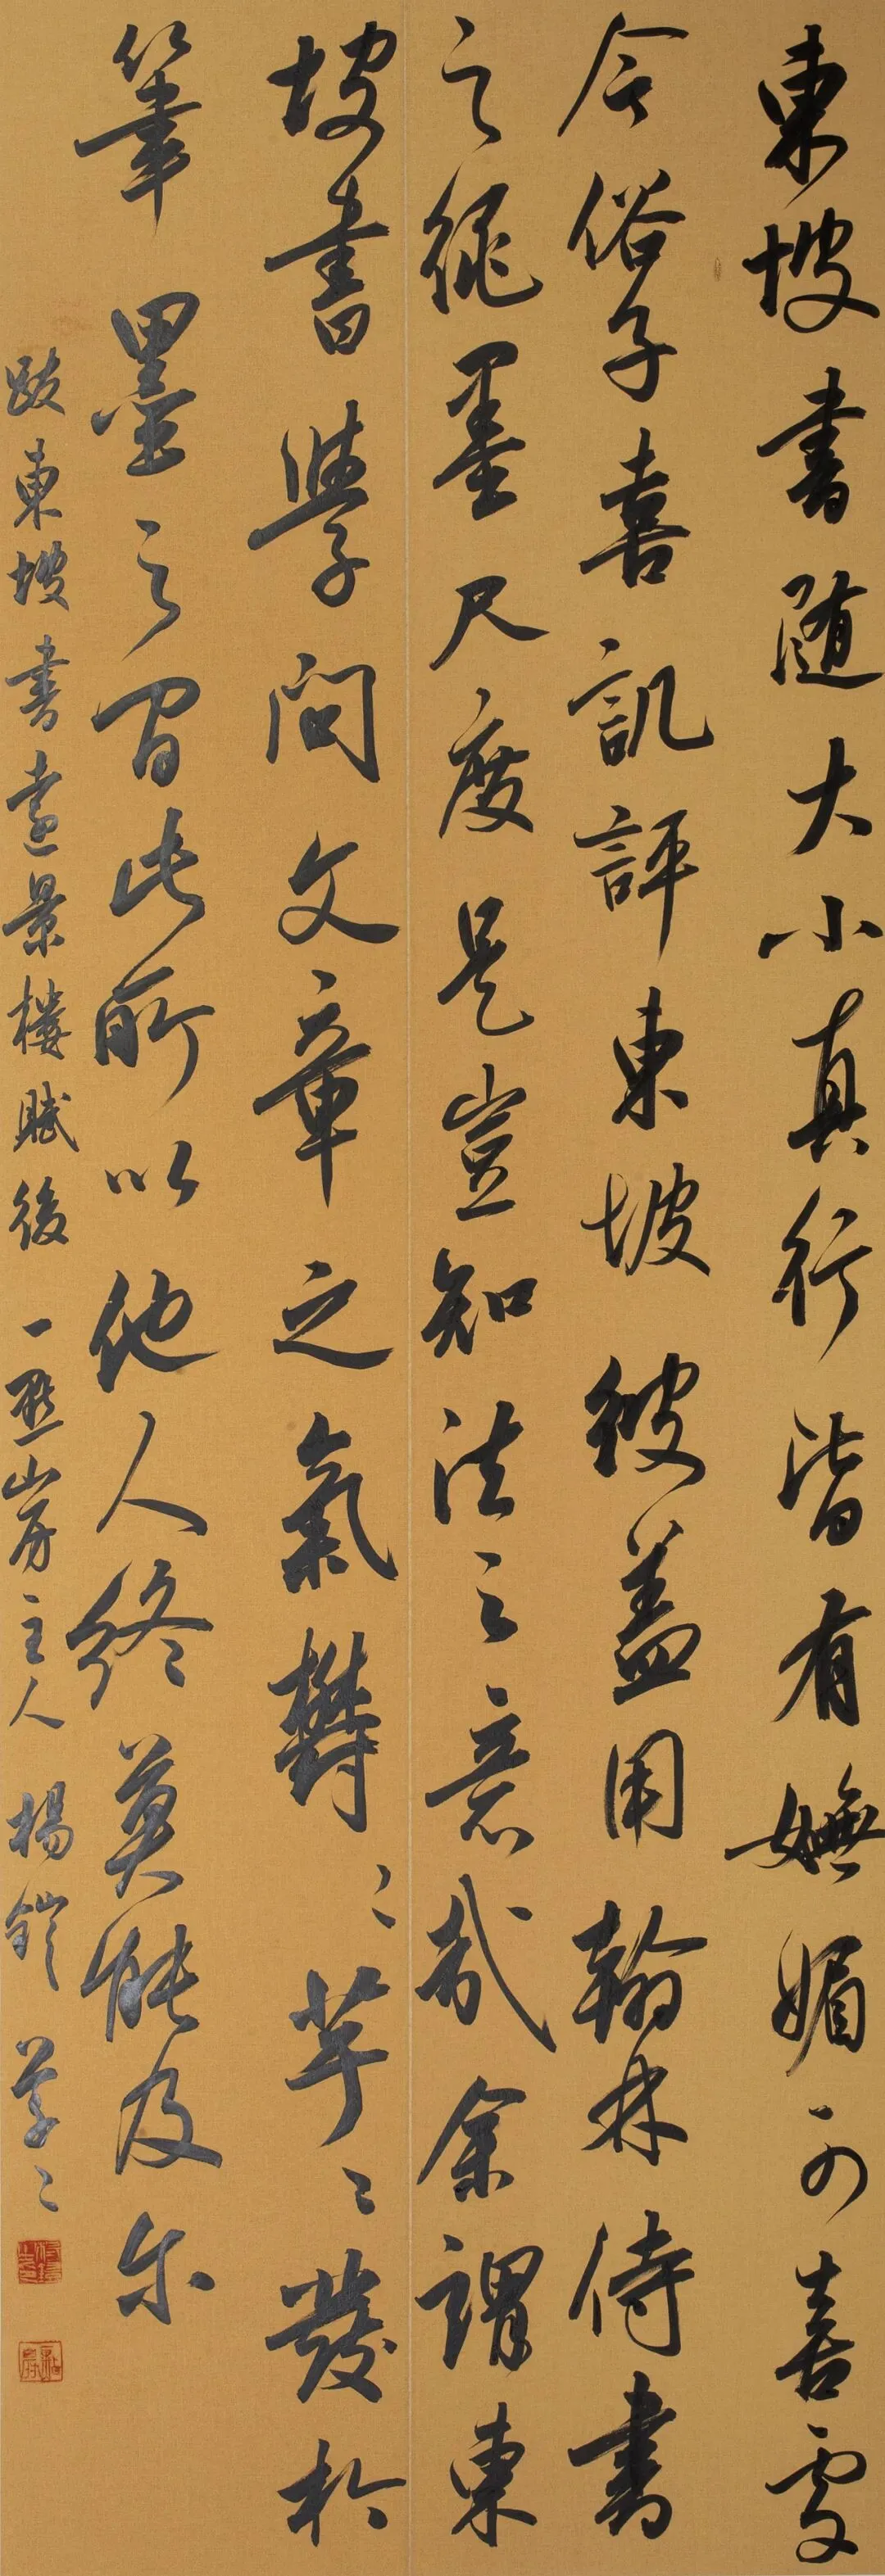 東坡書随大小真行皆有嫵媚可喜處
今俗子喜訊評東坡彼蓋用翰林侍書
之繩墨尺度是豈知法之意哉余謂東
坡書學問文章之氣鬱〻芊〻發於
筆墨之間此所以他人終莫能及尓
跋東坡書遠景樓賦後 一點山房主人 楊鎧 草〻